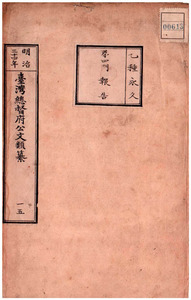 明治
三十年
臺灣總督府公文類纂
一五
乙種永久
第四門 報告